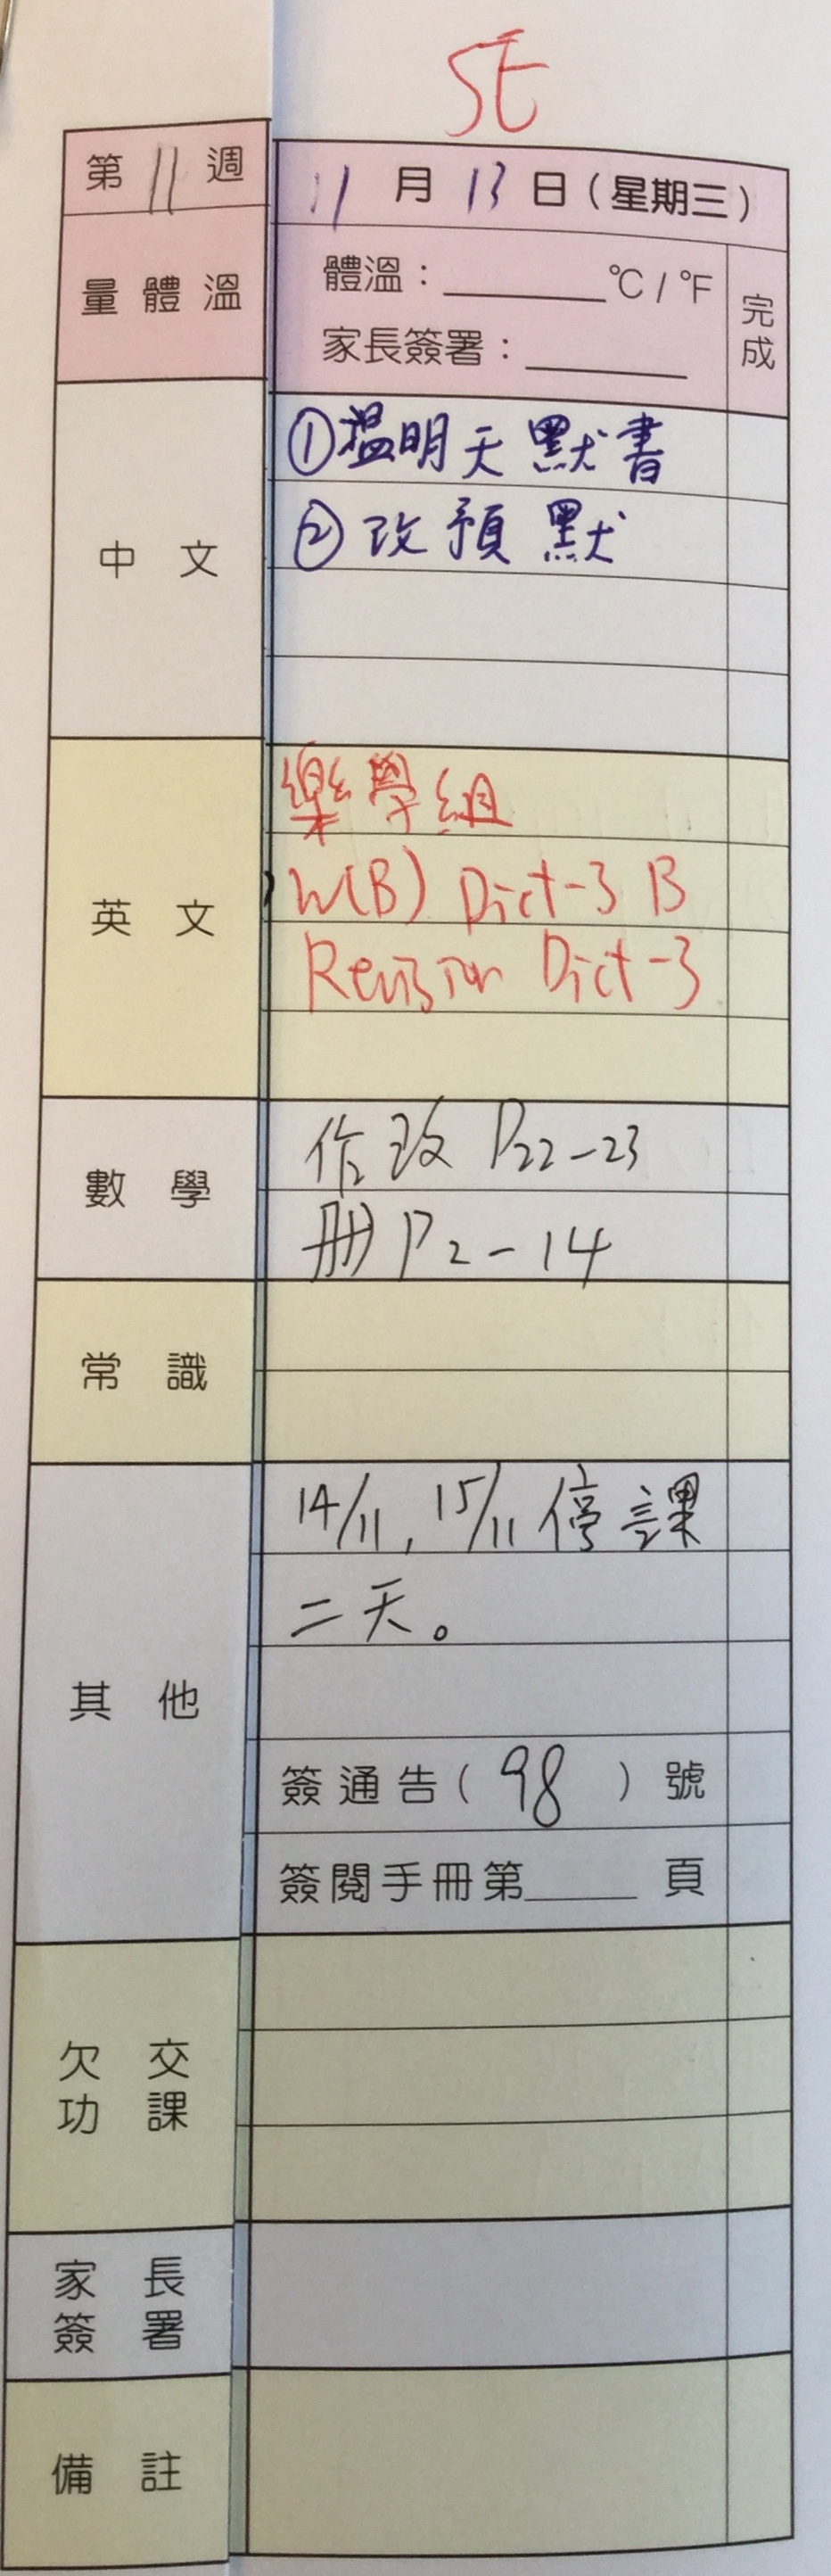 5E
第 11 週
11 月 13 日(星期三)
量體溫
體溫：______°C / °F
家長簽署：______
完成
中文
①溫明天默書
②改預默
英文
樂學組
W(B) Dict-3 B
Revision Dict-3
數學
作改 P22-23
冊 P2-14
常識
其他
14/11, 15/11 停課
二天。
簽通告( 98 )號
簽閱手冊第____頁
欠交
功課
家長
簽署
備註